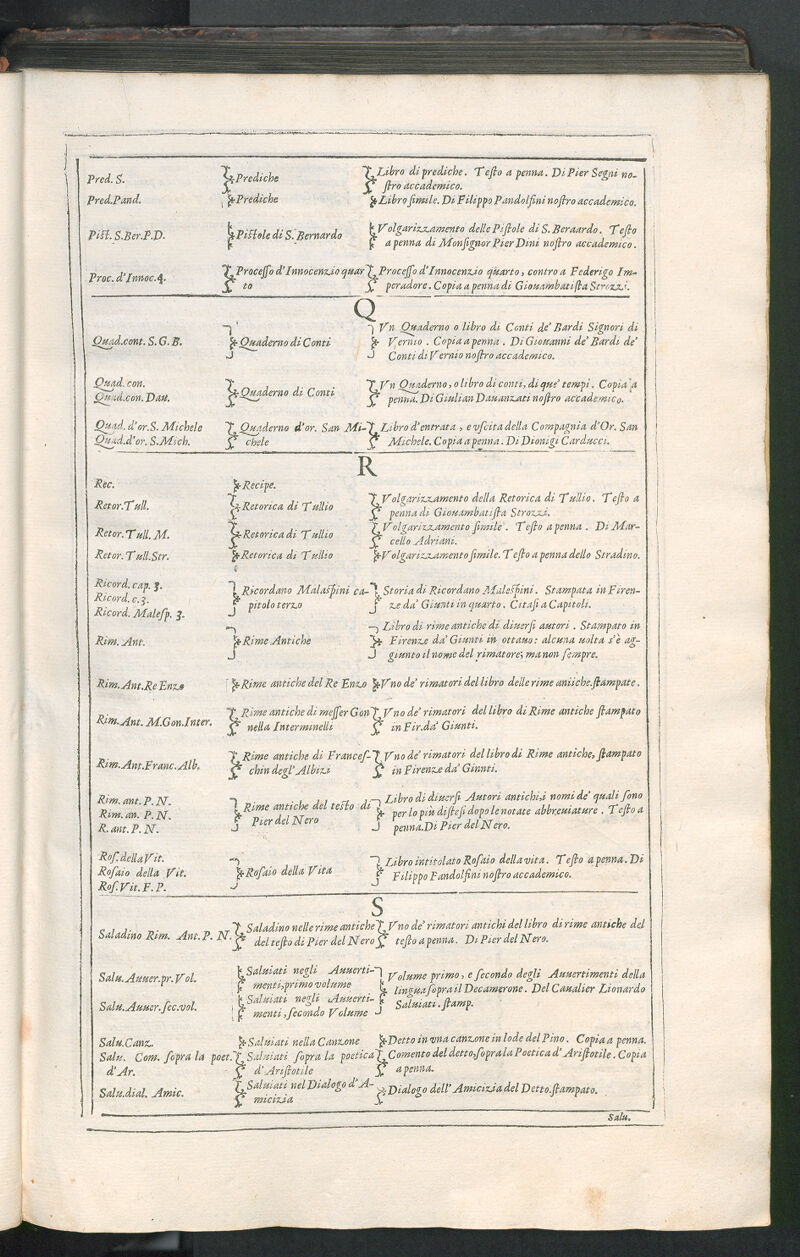 Pred. S. Prediche Libro di prediche. Teſto a penna. Di Pier Segni no-
ſtro accademico.
Pred.Pand. Prediche Libro ſimile. Di Filippo Pandolfini noſtro accademico.
Piſt. S.Ber.P.D. Piſtole di S. Bernardo Volgarizzamento delle Piſtole di S. Beraardo. Teſto
a penna di Monſignor Pier Dini noſtro accademico.
Proc. d'Innoc.4. Proceſſo d'Innocenzio quar Proceſſo d'Innocenzio quarto, contro a Federigo Im-
to peradore. Copia a penna di Giouambatiſta Strozzi.
Q
Quad.cont. S.G.B. Quaderno di Conti Vn Quaderno o libro di Conti de' Bardi Signori di
Vernio. Copia a penna. Di Giouanni de' Bardi de'
Conti di Vernio noſtro accademico.
Quad. con.
Quad.con. Dau. Quaderno di Conti Vn Quaderno, o libro di conti, di que' tempi. Copia a
penna. Di Giulian Dauanzati noſtro accademico.
Quad. d'or.S. Michele Quaderno d'or. San Mi- Libro d'entrata, e vſcita della Compagnia d'Or. San
Quad.d'or. S.Mich. chele Michele. Copia a penna. Di Dionigi Carducci.
R
Rec. Recipe.
Retor.Tull. Retorica di Tullio Volgarizzamento della Retorica di Tullio. Teſto a
penna di Giouambatiſta Strozzi.
Retor.Tull. M. Retorica di Tullio Volgarizzamento ſimile. Teſto a penna. Di Mar-
cello Adriani.
Retor. Tull.Str. Retorica di Tullio Volgarizzamento ſimile. Teſto a penna dello Stradino.
Ricord. cap. 3.
Ricord. c. 3. Ricordano Malaſpini ca- Storia di Ricordano Maleſpini. Stampata in Firen-
Ricord. Maleſp. 3. pitolo terzo ze da' Giunti in quarto. Citaſi a Capitoli.
Rim. Ant. Rime Antiche Libro di rime antiche di diuerſi autori. Stampato in
Firenze da' Giunti in ottauo: alcuna uolta s'è ag-
giunto il nome del rimatore; ma non ſempre.
Rim. Ant.Re Enzo Rime antiche del Re Enzo Vno de' rimatori del libro delle rime antiche.ſtampate.
Rim. Ant. M.Gon.Inter. Rime antiche di meſſer Gon Vno de' rimatori del libro di Rime antiche ſtampato
nella Interminelli in Fir.da' Giunti.
Rim.Ant.Franc.Alb. Rime antiche di Franceſ- Vno de' rimatori del libro di Rime antiche, ſtampato
chin degl'Albizi in Firenze da' Giunti.
Rim. ant. P. N. Rime antiche del teſto di Libro di diuerſi Autori antichi,i nomi de' quali ſono
Rim. an. P. N. Pier del Nero per lo più diſteſi dopo le notate abbreuiature. Teſto a
R. ant. P. N. penna.Di Pier del Nero.
Roſ. della Vit.
Roſaio della Vit. Roſaio della Vita Libro intitolato Roſaio della vita. Teſto a penna. Di
Roſ.Vit. F. P. Filippo Pandolfini noſtro accademico.
S
Saladino Rim. Ant. P. N. Saladino nelle rime antiche Vno de' rimatori antichi del libro di rime antiche del
del teſto di Pier del Nero teſto a penna. Di Pier del Nero.
Salu. Auuer.pr. Vol. Saluiati negli Auuerti- Volume primo, e ſecondo degli Auuertimenti della
menti,primo volume lingua ſopra il Decamerone. Del Caualier Lionardo
Salu. Auuer.ſec.vol. Saluiati negli Auuerti- Saluiati. ſtamp.
menti, ſecondo Volume
Salu.Canz. Saluiati nella Canzone Detto in vna canzone in lode del Pino. Copia a penna.
Salu. Com. ſopra la poet. Saluiati ſopra la poetica Comento del detto,ſopra la Poetica d'Ariſtotile. Copia
d'Ar. d'Ariſtotile a penna.
Salu.dial. Amic. Saluiati nel Dialogo d'A- Dialogo dell'Amicizia del Detto.ſtampato.
micizia
Salu.